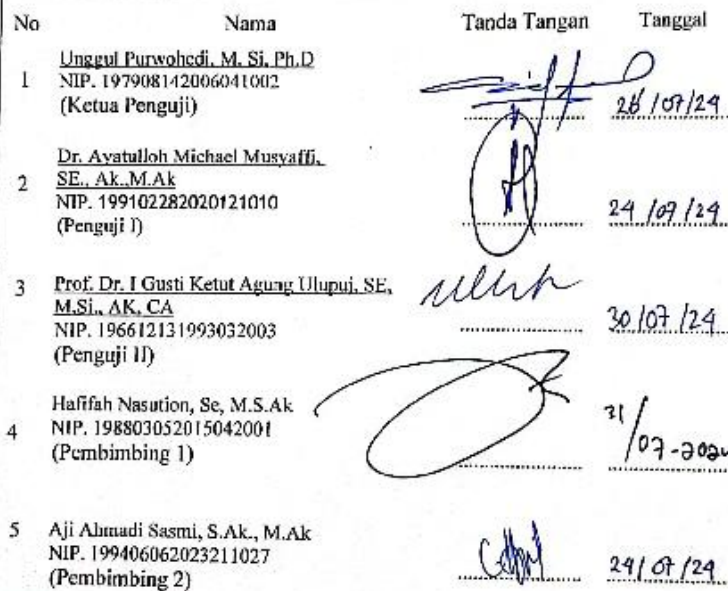 No Nama Tanda Tangan Tanggal
1 Unggul Purwohedi, M. Si, Ph.D
NIP. 197908142006041002
(Ketua Penguji)
26/07/24
2 Dr. Ayatulloh Michael Musyaffi,
SE., Ak.,M.Ak
NIP. 199102282020121010
(Penguji I)
24/07/24
3 Prof. Dr. I Gusti Ketut Agung Ulupuj, SE,
M.Si., AK, CA
NIP. 196612131993032003
(Penguji II)
30/07/24
4 Hafifah Nasution, Se, M.S.Ak
NIP. 198803052015042001
(Pembimbing 1)
31/07-2024
5 Aji Ahmadi Sasmi, S.Ak., M.Ak
NIP. 199406062023211027
(Pembimbing 2)
24/07/24